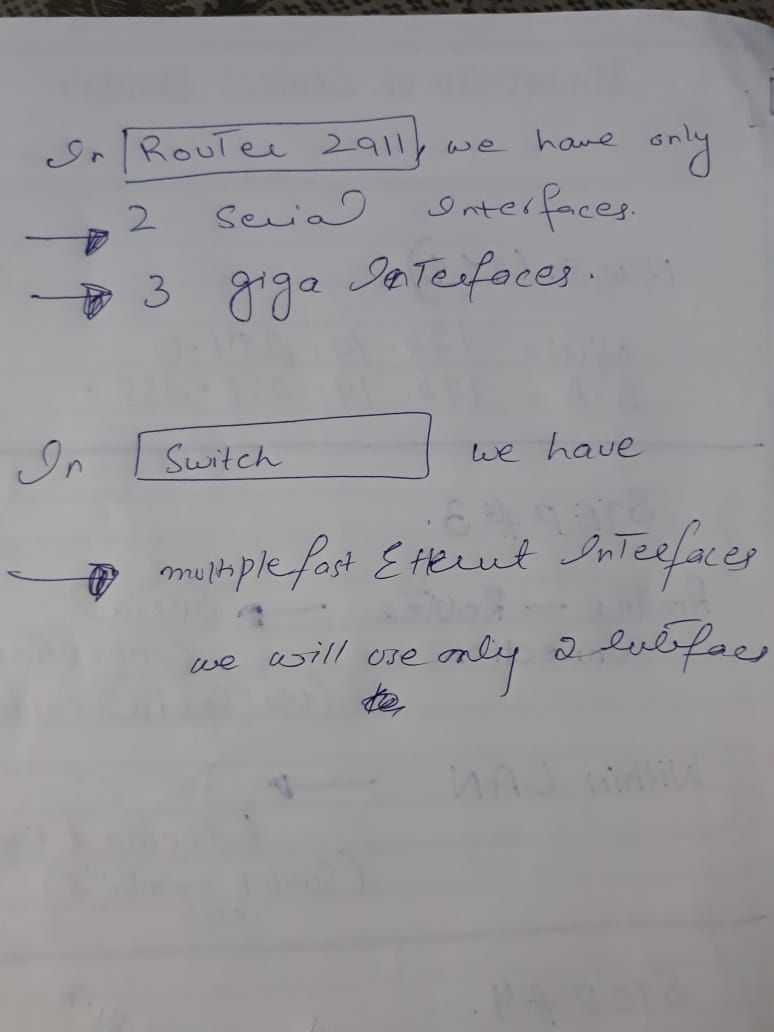 In Router 2911, we have only
2 Serial Interfaces.
3 giga Interfaces.
In Switch we have
multiple fast Ethernet Interfaces
we will use only 2 Interfaces